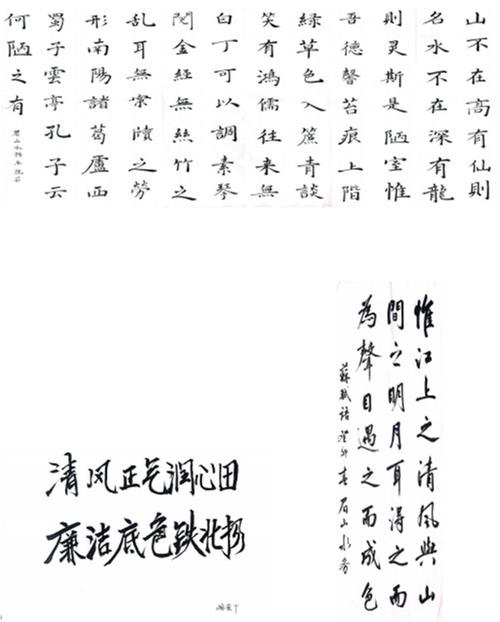 山不在高有仙則
名水不在深有龍
則灵斯是陋室惟
吾德馨苔痕上階
綠草色入簾青談
笑有鴻儒往来無
白丁可以調素琴
閱金經無絲竹之
乱耳無案牘之勞
形南陽諸葛廬西
蜀子雲亭孔子云
何陋之有
眉山水務
惟江上之清風與山
間之明月耳得之而
為聲目遇之而成色
蘇軾語 癸卯春 眉山水务
清风正气润心田
廉洁底色铁